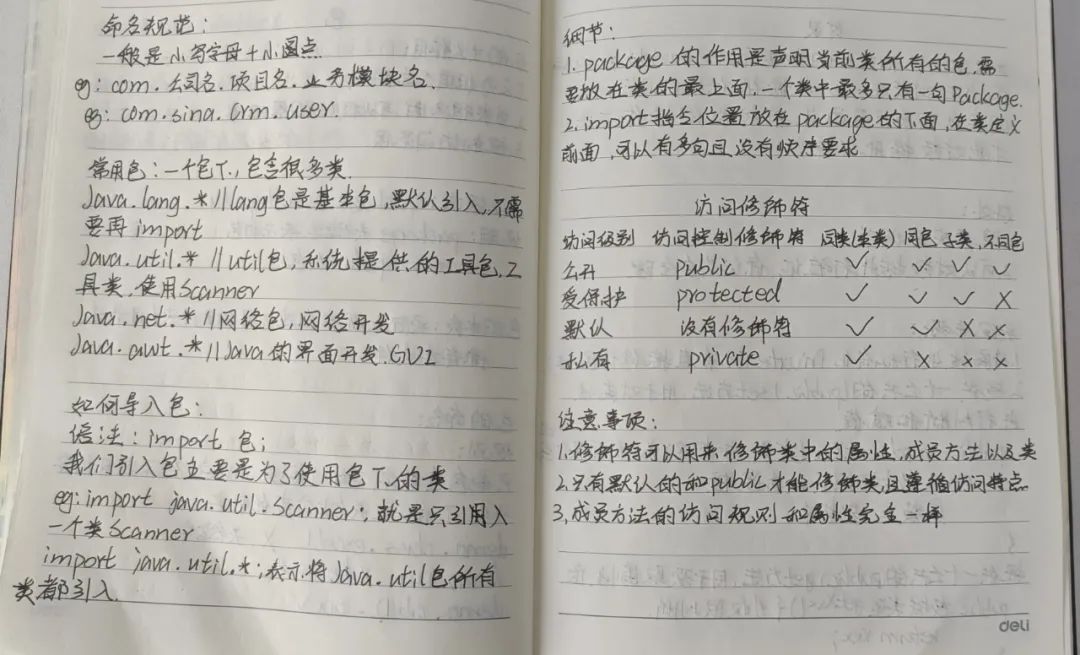 命名规范：
一般是小写字母+小圆点
eg：com.公司名.项目名.业务模块名.
eg：com.sina.crm.user.
常用包：一个包下，包含很多类.
Java.lang.*//lang包是基本包，默认引入，不需
要再import
Java.util.* //util包，系统提供的工具包，工
具类，使用Scanner
Java.net.*//网络包，网络开发
Java.awt.*//Java的界面开发.GUI
如何导入包：
语法：import 包；
我们引入包主要是为了使用包下的类
eg：import java.util.Scanner；就是只引用入
一个类Scanner
import java.util.*；表示将Java.util包所有
类都引入.
细节：
1. package 的作用是声明当前类所有的包，需
要放在类的最上面，一个类中最多只有一句Package.
2. import指令位置放在package的下面，在类定义
前面，可以有多句且没有顺序要求
访问修饰符
访问级别 访问控制修饰符 同类(本类) 同包 子类，不同包
公开 public ✓ ✓ ✓ ✓
受保护 protected ✓ ✓ ✓ ×
默认 没有修饰符 ✓ ✓ × ×
私有 private ✓ × × ×
注意事项：
1.修饰符可以用来修饰类中的属性，成员方法以及类
2.只有默认的和public才能修饰类，且遵循访问特点
3.成员方法的访问规则和属性完全一样
deli